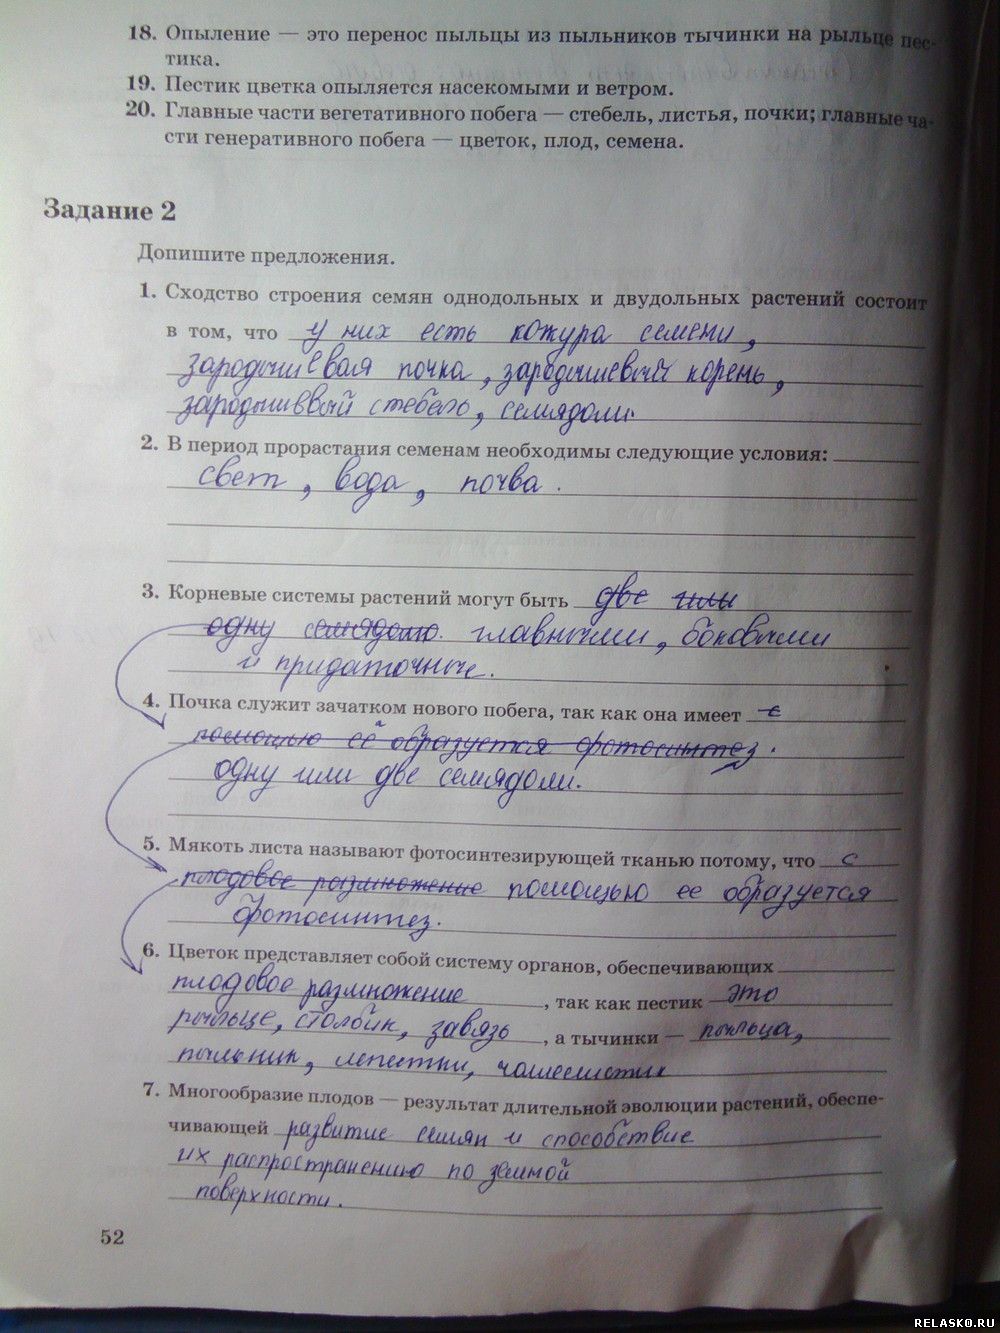 18. Опыление — это перенос пыльцы из пыльников тычинки на рыльце пес-
тика.
19. Пестик цветка опыляется насекомыми и ветром.
20. Главные части вегетативного побега — стебель, листья, почки; главные ча-
сти генеративного побега — цветок, плод, семена.
Задание 2
Допишите предложения.
1. Сходство строения семян однодольных и двудольных растений состоит
в том, что у них есть кожура семени,
зародышевая почка, зародышевый корень,
зародышввый стебель, семядоли.
2. В период прорастания семенам необходимы следующие условия:
свет, вода, почва.
3. Корневые системы растений могут быть две или
одну семядолю. главными, боковыми
и придаточные.
4. Почка служит зачатком нового побега, так как она имеет с
помощью её образуется фотосинтез.
одну или две семядоли.
5. Мякоть листа называют фотосинтезирующей тканью потому, что с
плодовое размножение помощью ее образуется
фотосинтез.
6. Цветок представляет собой систему органов, обеспечивающих
плодовое размножение, так как пестик это
рыльце, столбик, завязь, а тычинки — пыльца,
пыльник, лепестки, чашелистик
7. Многообразие плодов — результат длительной эволюции растений, обеспе-
чивающей развитие семян и способствие
их распространению по земной
поверхности.
52
RELASKO.RU